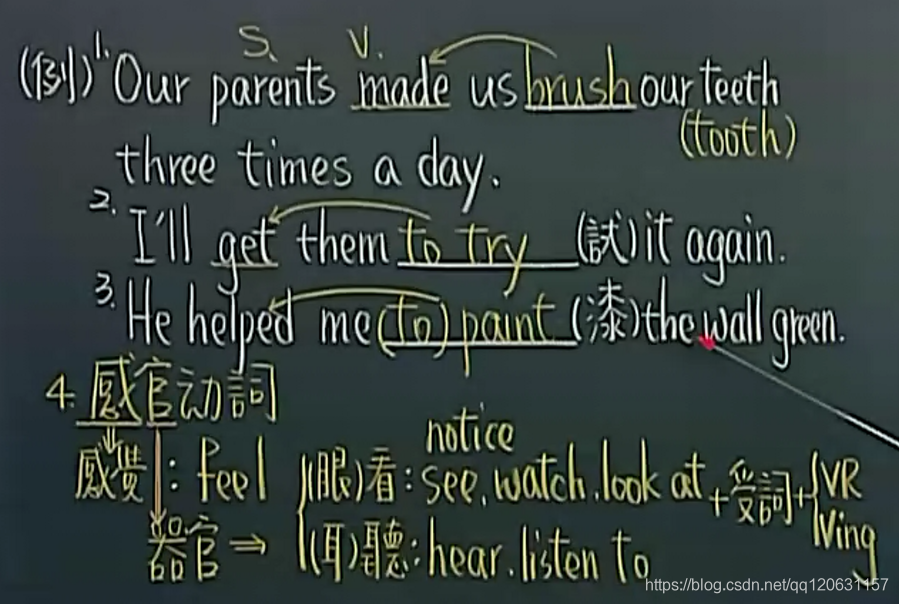 S. V.
(例) 1. Our parents made us brush our teeth
(tooth)
three times a day.
2. I'll get them to try (試) it again.
3. He helped me (to) paint (漆) the wall green.
4. 感官动詞
notice
感覺: feel (眼)看: see, watch, look at + 受詞 + VR
Ving
器官 ⇒ (耳)聽: hear, listen to
https://blog.csdn.net/qq120631157